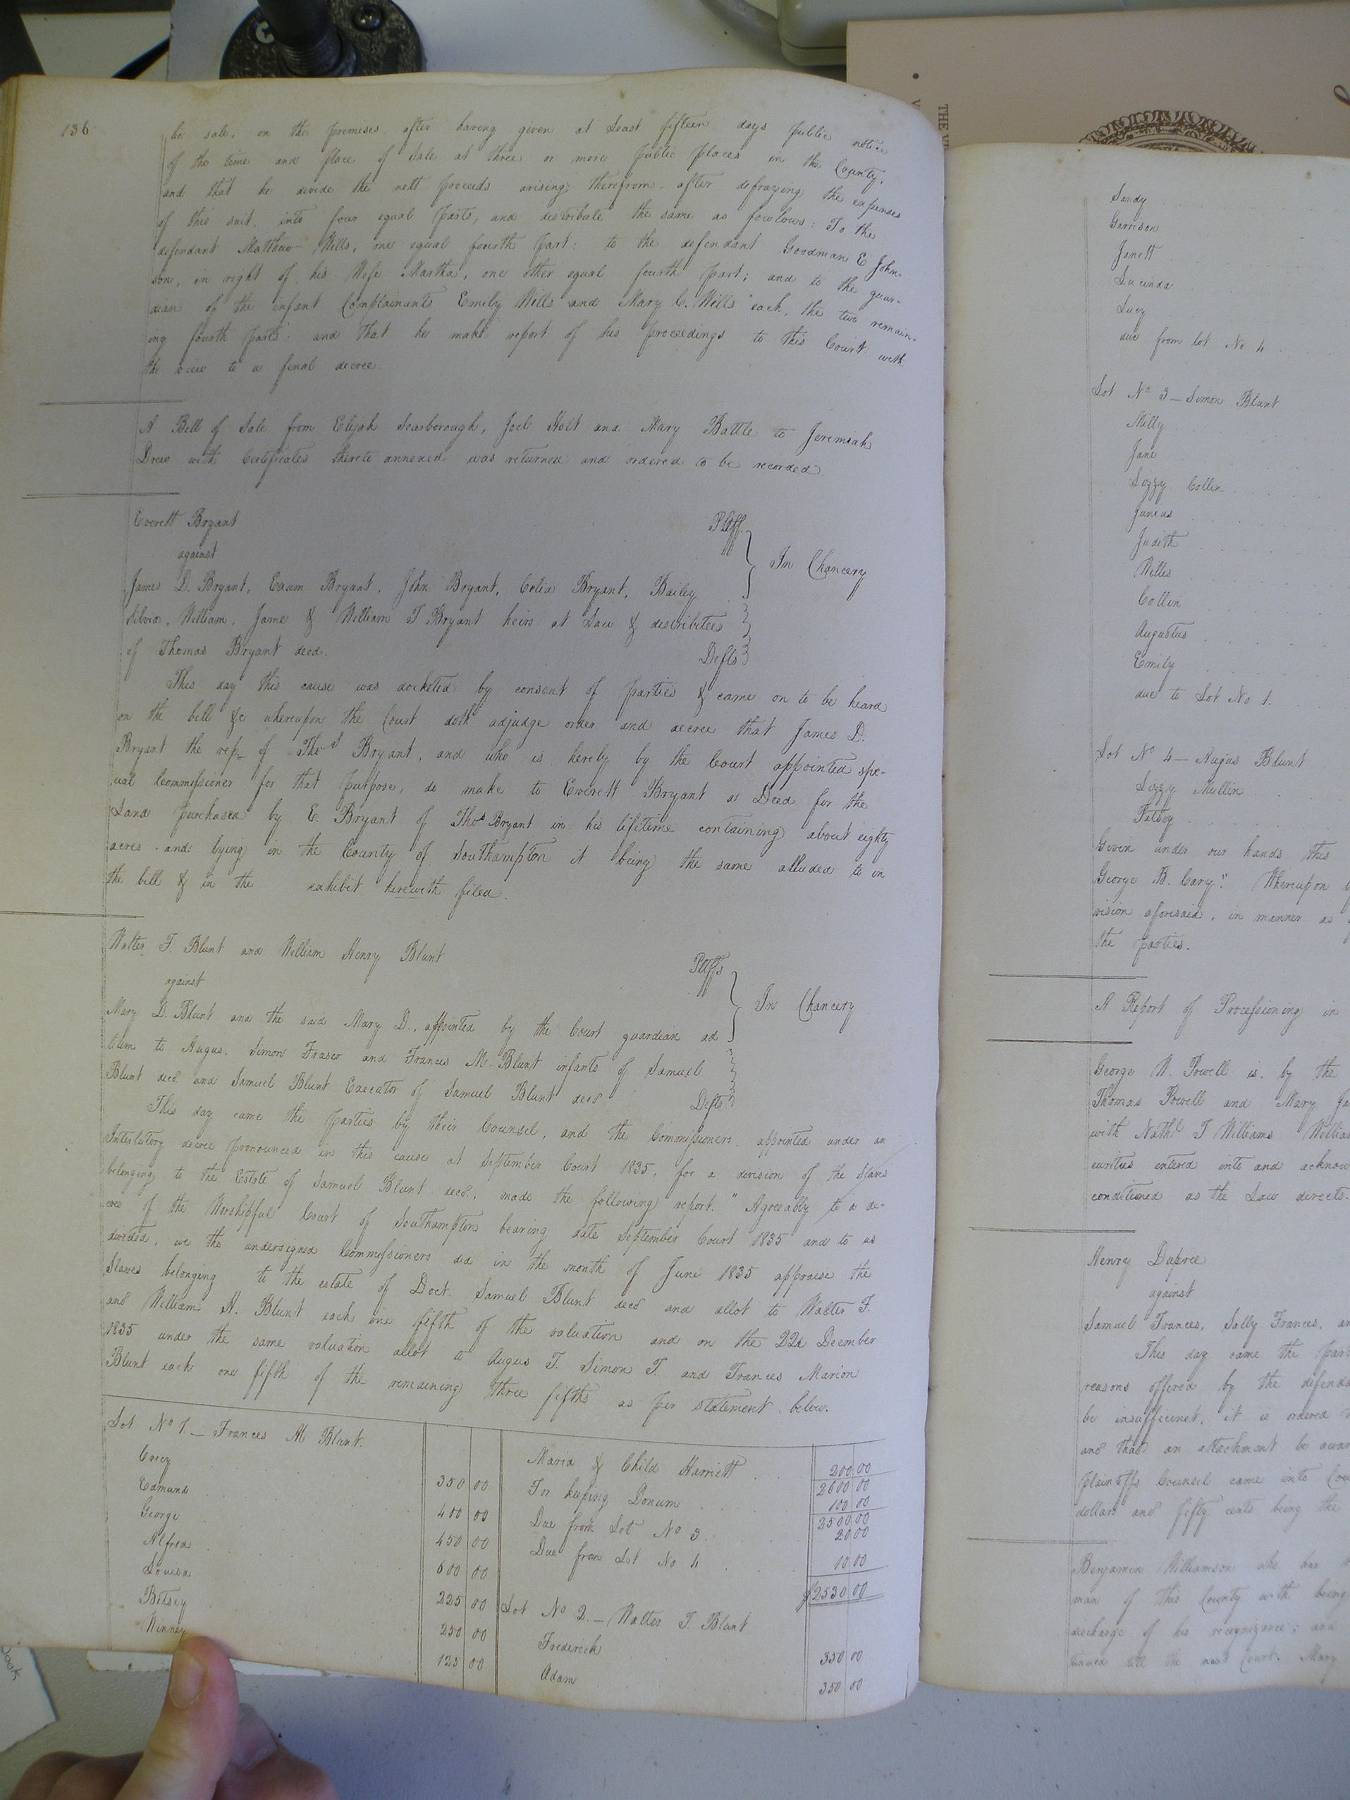 136
he sale, on the premises after having given at least fifteen days public notice
of the time and place of sale at three or more public places in the County,
and that he divide the nett proceeds arising therefrom, after defraying the expenses
of this suit, into four equal parts, and distribute the same as follows: To the
defendant Matthew Wills, one equal fourth part: to the defendant Goodman E John-
son, in right of his Wife Martha, one other equal fourth part; and to the guar-
dian of the infant Complainants Emily Wills and Mary C. Wills each, the two remain-
ing fourth parts: and that he make report of his proceedings to this Court with
the view to a final decree.
A Bill of Sale from Elijah Scarborough, Joel Holt and Mary Battle to Jeremiah
Drew with Certificates thereto annexed was returned and ordered to be recorded.
Everett Bryant Pltff.
against
In Chancery
James D. Bryant, Exum Bryant, John Bryant, Bryant, Bailey
William, Jane & William T Bryant heirs at Law & distributees
of Thomas Bryant decd. Defts
This day this cause was docketed by consent of parties & came on to be heard
on the bill &c whereupon the Court doth adjudge order and decree that James D.
Bryant the rep. of Thos Bryant, and who is hereby by the Court appointed spe-
cial Commissioner for that purpose, do make to Everett Bryant a Deed for the
Land purchased by E. Bryant of Thos Bryant in his lifetime containing about eighty
acres and lying in the County of Southampton it being the same alluded to in
the bill & in the exhibit herewith filed.
Walter F. Blunt and William Henry Blunt Pltffs
against
In Chancery
Mary D. Blunt and the said Mary D. appointed by the Court guardian ad
litum to Augus, Simon Fraser and Frances M. Blunt infants of Samuel
Blunt decd and Samuel Blunt Executor of Samuel Blunt decd Defts
This day came the parties by their Counsel, and the Commissioners appointed under an
Interlutory decree pronounced in this cause at September Court 1835, for a division of the slaves
belonging to the Estate of Samuel Blunt decd, made the following report. "Agreeably to a de-
cree of the Worshipful Court of Southampton bearing date September Court 1835 and to us
directed, we the undersigned Commissioners did in the month of June 1835 appraise the
Slaves belonging to the estate of Doct. Samuel Blunt decd and allot to Walter F.
and William H. Blunt each one fifth of the valuation and on the 22d December
1835 under the same valuation allot to Augus F. Simon F. and Frances Marion
Blunt each one fifth of the remaining three fifths as per statement below.
Lot No 1. — Frances M Blunt.
350 00
Edmund 400 00
George 450 00
Alfred 600 00
Louisa 225 00
Betsey 250 00
Winney 125 00
Maria & Child Harriett 200 00
2600 00
For keeping Bonum 100 00
2500 00
Due from Lot No 3 20 00
Due from Lot No 4 10 00
$2530 00
Lot No 2. — Walter F. Blunt
Frederick 350 00
Adam 350 00
Sandy
Garrison
Janett
Lucinda
Lucy
due from lot No 4
Lot No 3 — Simon Blunt
Milly
Jane
Lizzy Collin
Junius
Judith
Willis
Collin
Augustus
Emily
due to Lot No 1.
Lot No 4 — Augus Blunt
Lizzy Mullin
Patsey
Given under our hands this
George B. Cary." Whereupon
vision aforesaid, in manner as
the parties.
A Report of Processioning in
George N. Powell is by the
Thomas Powell and Mary
with Nathl T Williams
curities entered into and
conditioned as the Law directs.
Henry Dupree
against
Samuel Frances, Sally Frances,
This day came the
reasons offered by the
be insufficient, it is ordered
and that an attachment be
plaintiffs Counsel came into
dollars and fifty cents being the
Benjamin Williamson who
man of this County with being
discharge of his recognizance; and
till the next Court. Mary